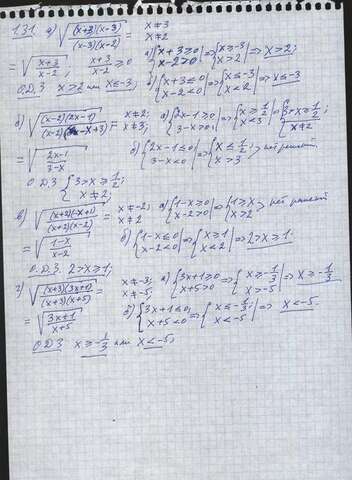 1.31. а) √((x+3)(x-3)/(x-3)(x-2)) = x≠3 x≠2
= √(x+3/x-2), x+3/x-2 ≥0 а) {x+3≥0 x-2>0 => {x≥-3 x>2 => x>2;
О.Д.З x>2 или x≤-3; б) {x+3≤0 x-2<0 => {x≤-3 x<2 => x≤-3
б) √((x-2)(2x-1)/(x-2)(-x+3)) = x≠2; x≠3; а) {2x-1≥0 3-x>0; => {x≥1/2 x<3 => {3>x≥1/2; x≠2
= √(2x-1/3-x) б) {2x-1≤0 3-x<0 => {x≤1/2 x>3; нет решений
О.Д.З {3>x≥1/2; x≠2;
в) √((x+2)(-x+1)/(x+2)(x-2)) = x≠-2; x≠2 а) {1-x≥0 x-2>0 => {1≥x x>2 нет решений
= √(1-x/x-2) б) {1-x≤0 x-2<0 => {x≥1 x<2 => 2>x≥1.
О.Д.З. 2>x≥1;
г) √((x+3)(3x+1)/(x+3)(x+5)) = x≠-3; x≠-5; а) {3x+1≥0 x+5>0 => {x≥-1/3 x>-5 => x≥-1/3
= √(3x+1/x+5) б) {3x+1≤0 x+5<0 => {x≤-1/3; x<-5 => x<-5
О.Д.З x≥-1/3 или x<-5;